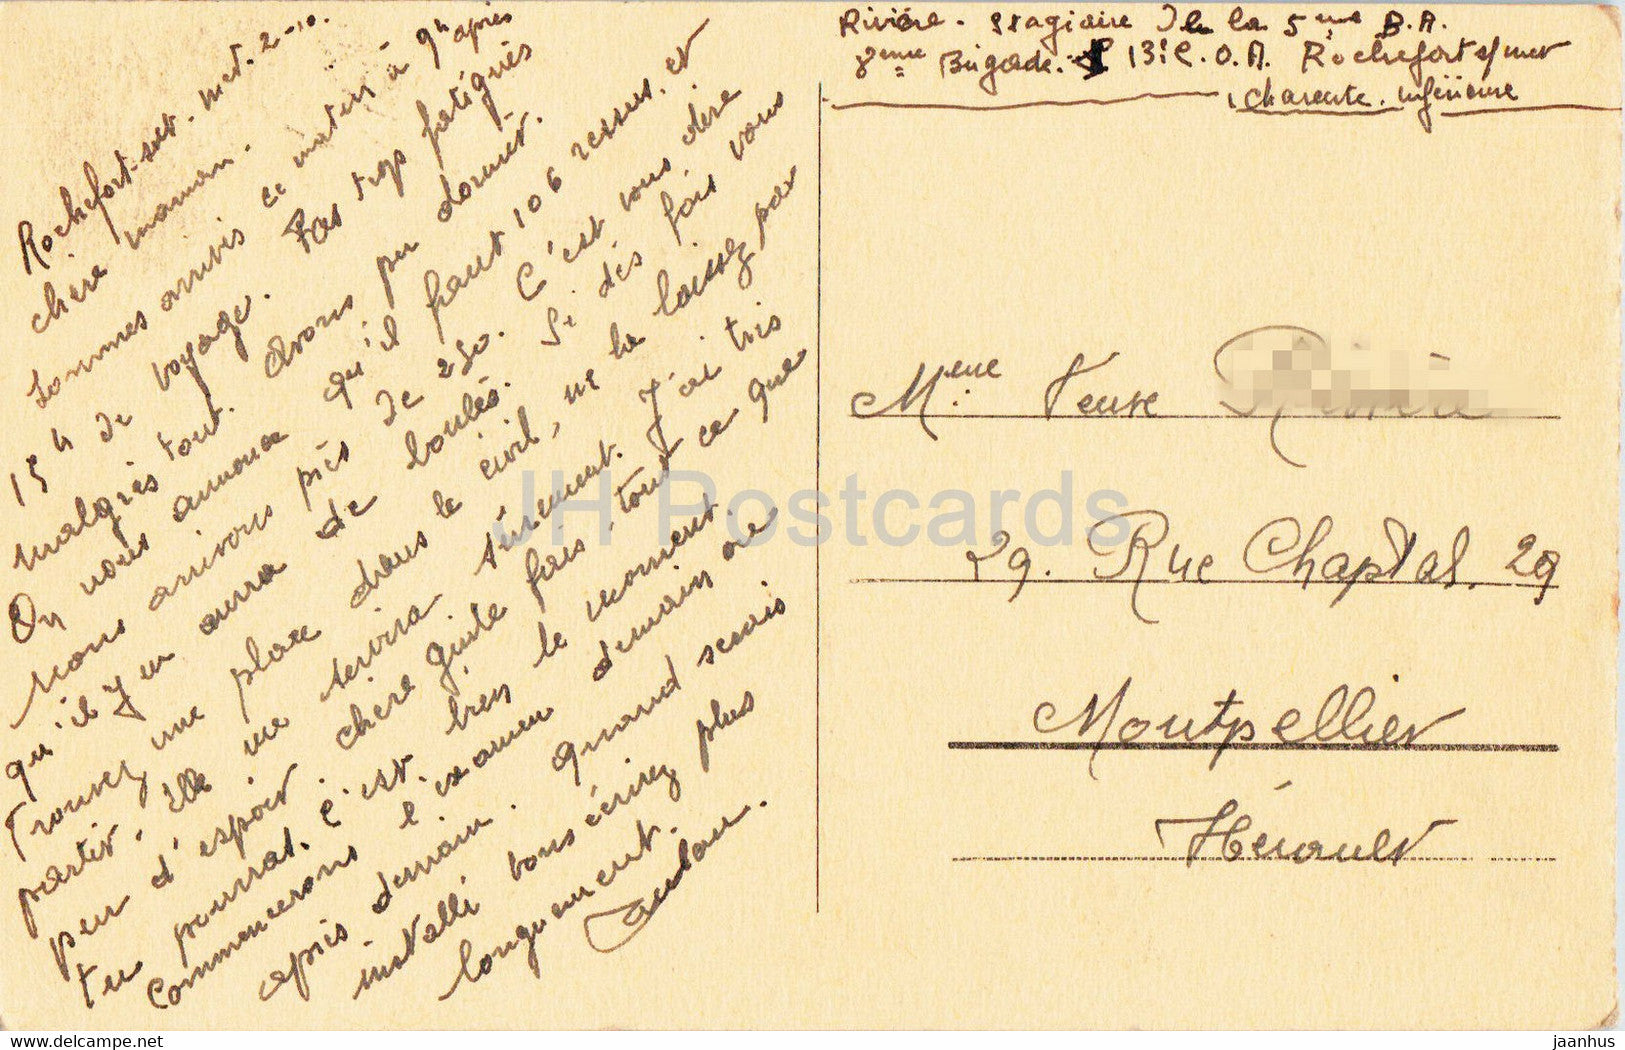 Rochefort-sur-met. 2-10.
chère maman.
sommes arrivés ce matin à 9h après
15h de voyage. Pas trop fatigués
malgrès tout. avons pu dormir.
On nous annonce qu'il faut 106 reçus. et
nous arrivons près de 250. C'est vous dire
qu'il y en aura de boulés. Si dés fois vous
Trouvez une place dans le civil, ne la laissez pas
partir. Elle me servira sûrement. J'ai très
peu d'espoir. chère guite fais tout ce que
tu pourras. C'est bien le moment.
Commencerons l'examen demain ou
après demain. quand serais
installé vous écrirez plus
longuement.
Rivière. Stagiaire de la 5ème B.A.
8eme Brigade. 13. C.O.A. Rochefort s/mer
charente. inférieure
Meme Veuve
29. Rue Chaptal. 29
Montpellier
Hérault
JH Postcards
jaanhus